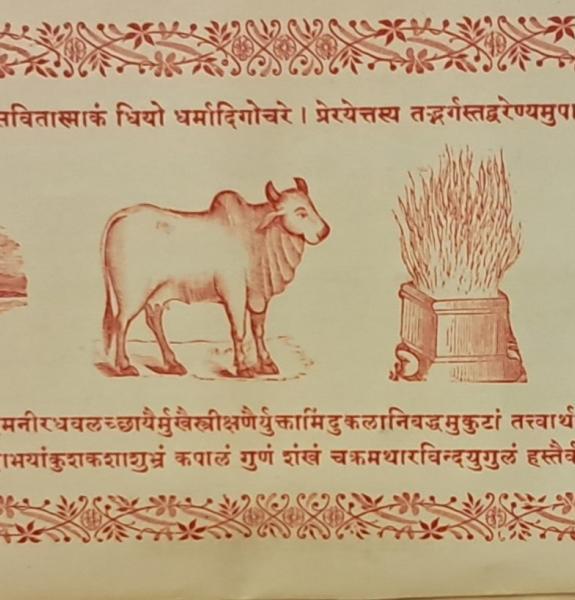 सवितास्माकं धियो धर्मादिगोचरे । प्रेरयेत्तस्य तद्भर्गस्तद्वरेण्यमुपा
मनीरधवलच्छायैर्मुखैस्त्रीक्षणैर्युक्तामिंदुकलानिबद्धमुकुटां तत्त्वार्थ
भयांकुशकशाशुभ्रं कपालं गुणं शंखं चक्रमथारविन्दयुगुलं हस्तैर्व